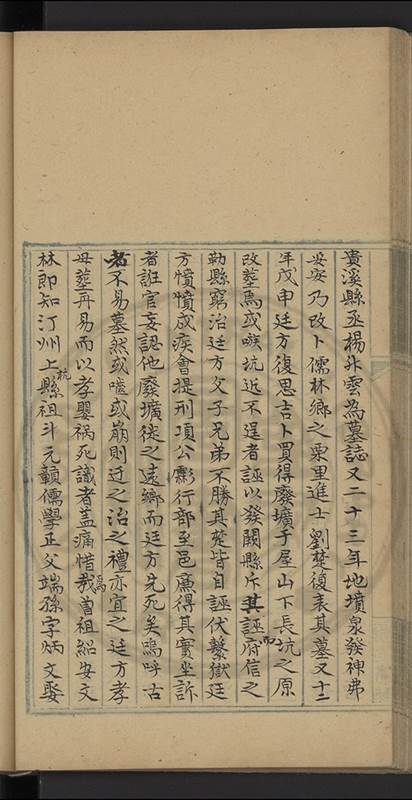 貴溪縣丞楊升雲為墓誌又二十三年地墳泉發神弗
妥安乃改卜儒林鄉之栗里進士劉楚復表其墓又十二
年戊申廷方復思吉卜買得廢壙于屋山下長坑之原
改塟焉或嗾坑近不逞者誣以發闕縣斥其誣而府信之
勒縣窮治廷方父子兄弟不勝其楚皆自誣伏繫獄廷
方憤憤成疾會提刑項公劇行部至邑廉得其實坐訴
者誑官妄認他廢壙徙之遠鄉而廷方先死矣嗚呼古
者不易墓然或噬或崩則迁之治之禮亦宜之廷方孝
母塟再易而以孝嬰禍死識者盖痛惜焉我曽祖紹安文
林即知汀州上杭縣祖斗元贛儒學正父端孫字炳文娶